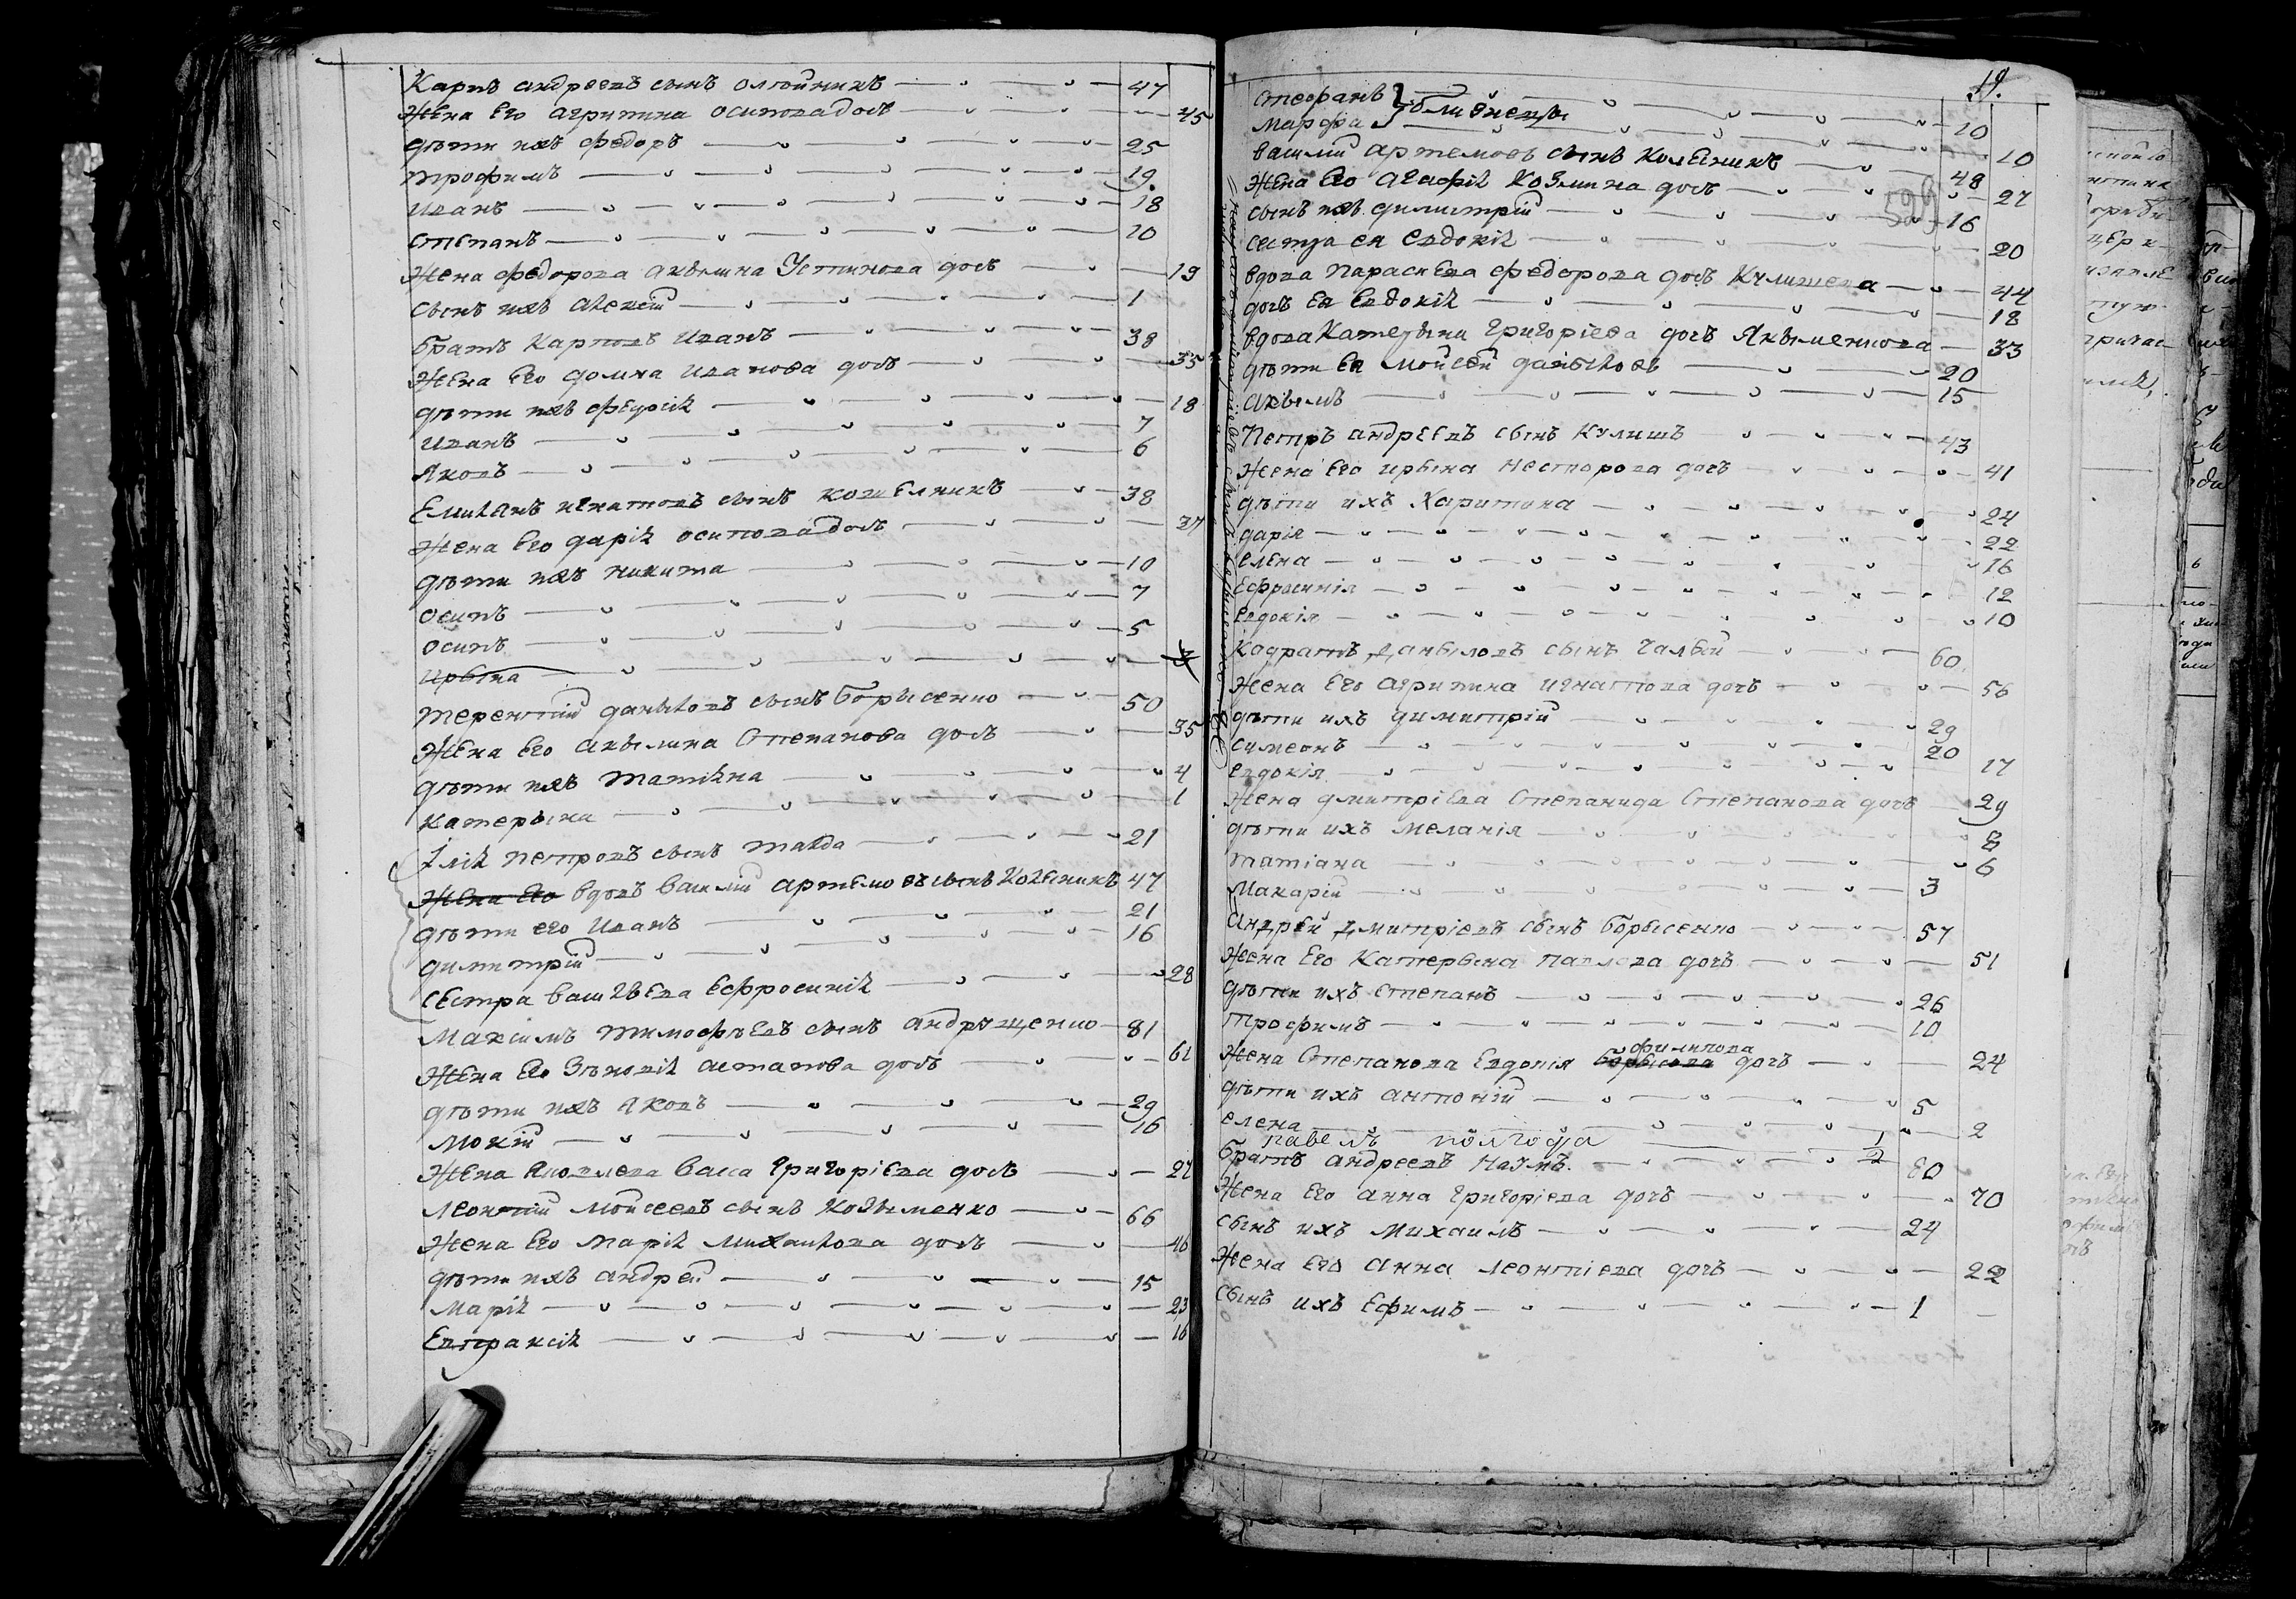 Карпъ андреевъ сынъ олѣйникъ 47
Жена Его агрипина осипова дочъ 45
дѣти ихъ федоръ 25
трофимъ 19
иванъ 18
степанъ 10
Жена федорова акилина Устинова дочъ 19
сынъ ихъ алексій 1
братъ Карповъ иванъ 38
Жена Его домна иванова дочъ 35
дѣти ихъ феодосія 18
иванъ 7
яковъ 6
Емиліанъ игнатовъ сынъ 38
Жена Его дарія осипова дочъ 27
дѣти ихъ никита 10
осипъ 7
осипъ 5
ирына
терентій даниловъ сынъ борысенко 50
Жена Его акилина степанова дочъ 35
дѣти ихъ татіяна 4
катерына 1
Илія петровъ сынъ 21
Жена Его вдовъ василій артемовъ сынъ колѣсникъ 47
дѣти его иванъ 21
димитрій 16
сестра васильева Ефросинія 28
Максимъ тимофѣевъ сынъ андрущенко 81
Жена Его Зѣновія астапова дочъ 61
дѣти ихъ яковъ 29
мокій 16
Жена яковлева васса григоріева дочъ 27
леонтій мойсеевъ сынъ козыменко 66
Жена Его марія михайлова дочъ 46
дѣти ихъ андрей 15
марія 23
Евпраксія 16
19.
стефанъ } близнецы 10
марфа 10
василій артемовъ сынъ колѣсникъ 48
Жена Его агафія козмина дочъ 27
596
сынъ ихъ димитрій 16
сестра ея евдокія 20
вдова параскева федорова дочъ кулишева 44
дочъ Ея Евдокія 18
вдова Катерына григоріева дочъ Якыменкова 33
дѣти Ея мойсей даниловъ 20
акымъ 15
Петръ андреевъ сынъ кулишъ 43
Жена Его ирына несторова дочъ 41
дѣти ихъ харитина 24
дарія 22
елена 16
Ефросинія 12
евдокія 10
Кодратъ Даныловъ сынъ чалый 60
Жена Его агрипина игнатова дочъ 56
дѣти ихъ димитрій 29
симеонъ 20
евдокія 17
Жена дмитріева степанида степанова дочъ 29
дѣти ихъ меланія 8
татіана 6
Макарій 3
Андрей Дмитріевъ сынъ борысенко 57
Жена Его Катерына павлова дочъ 51
дѣти ихъ степанъ 26
трофимъ 10
филипова
Жена степанова Евдокія борысова дочъ 24
дѣти ихъ антоній 5
елена 2
павелъ полгода 1/2
братъ андреевъ наумъ 80
Жена Его анна григоріева дочъ 70
сынъ ихъ михаилъ 24
Жена Его анна леонтіева дочъ 22
сынъ ихъ Ефимъ 1